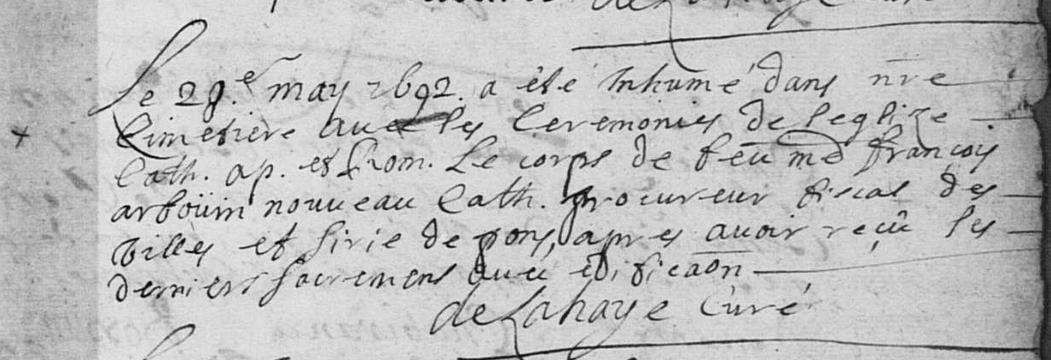 Le 28.e may 1692. a été Inhumé dans nre
Cimetiere avec les Ceremonies de leglize
Cath. ap. et Rom. Le corps de feu me francois
arboüin nouveau Cath. procureur fiscal des
Villes et sirie de pons, apres avoir reçû les
derniers sacremens avec edificaon
delahaye Curé